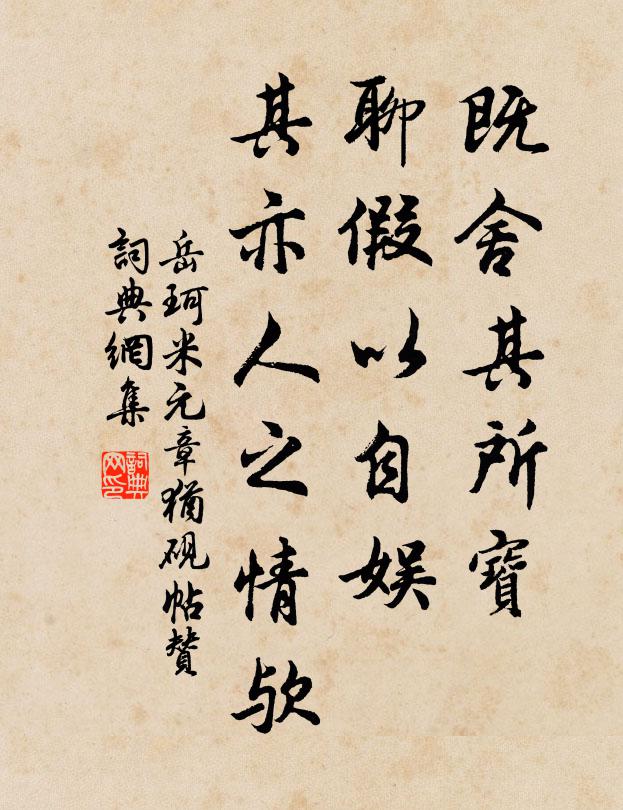 既舍其所寳
聊假以自娱
其亦人之情欤
岳珂米元章猶硯帖贊
詞典網集
詞典网印